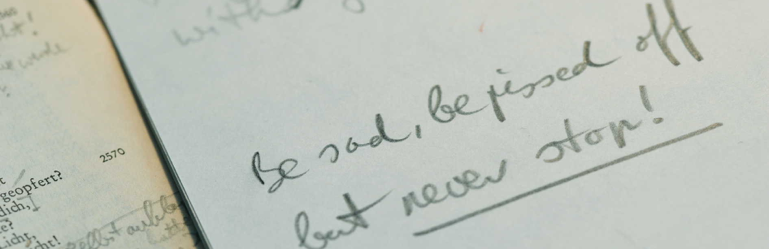 2570
geopfert?
dich,
with
Be sad, be pissed off
but never stop!